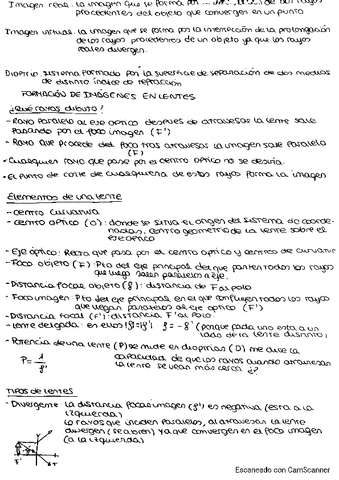 Imagen real: la imagen que se forma por
procedentes del objeto que convergen en un punto
Imagen virtual: la imagen que se forma por la intersección de la prolongación
de los rayos procedentes de un objeto ya que los rayos
reales divergen.
Dioptrio: sistema formado por la superficie de separación de dos medios
de distinto índice de refracción
FORMACIÓN DE IMÁGENES EN LENTES
¿Qué rayos dibujo?
- Rayo paralelo al eje óptico después de atravesar la lente sale
pasando por el foco imagen (F')
- Rayo que procede del foco tras atravesar la imagen sale paralelo
(F)
- Cualquier rayo que pase por el centro óptico no se desvía.
- El punto de corte de cualquiera de estos rayos forma la imagen
Elementos de una lente
- Centro curvatura
- Centro óptico (O): donde se sitúa el origen del sistema de coorde-
nadas, centro geométrico de la lente sobre el
eje óptico
- Eje óptico: Recta que pasa por el centro óptico y centros de curvatur
- Foco objeto (F): Pto del eje principal del que parten todos los rayos
que luego salen paralelos al eje.
- Distancia focal objeto (f): distancia de F al polo
- Foco imagen: Pto del eje principal en el que confluyen todos los rayos
que llegan paralelos al eje óptico (F')
- Distancia focal (f'): distancia F' al polo.
- Lente delgada: en ellos |f|=|f'| f = -f' (porque cada uno esta a un
lado de la lente distinto)
- Potencia de una lente (P) se mide en dioptrías (D) me dice la
P= 1/f' capacidad de que los rayos cuando atraviesan
la lente se vean más cerca ¿?
TIPOS DE LENTES
- Divergente la distancia focal imagen (f') es negativa (esta a la
izquierda)
Los rayos que inciden paralelos, al atravesar la lente
divergen (se abren) ya que convergen en el foco imagen
(a la izquierda)
Escaneado con CamScanner